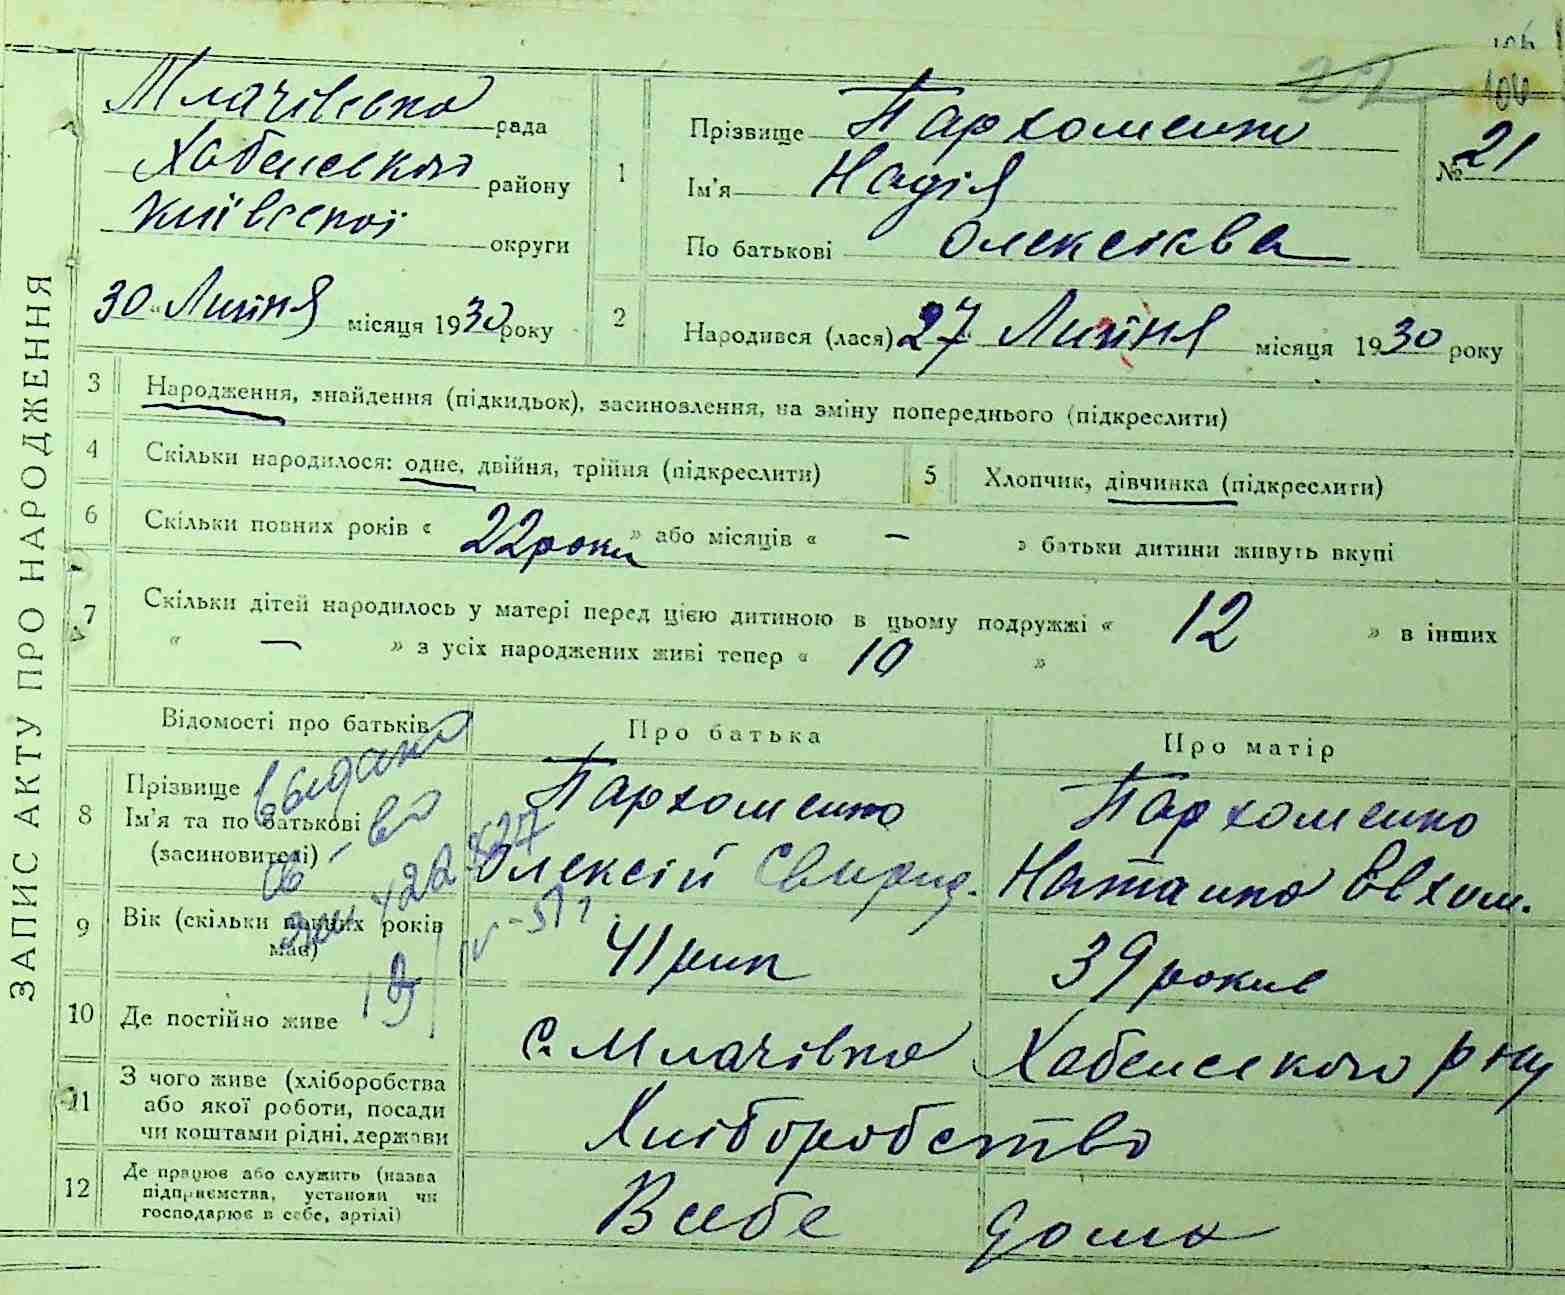 106
22
ЗАПИС АКТУ ПРО НАРОДЖЕННЯ
Млачівська рада
Хабенського району
Київської округи
30 " Липня місяця 1930 року
1
Прізвище Пархоменко
Ім'я Надія
По батькові Олексієва
№ 21
2
Народився (лася) 27 Липня місяця 1930 року
3 Народження, знайдення (підкидьок), засиновлення, на зміну попереднього (підкреслити)
4 Скільки народилося: одне, двійня, трійня (підкреслити)
5 Хлопчик, дівчинка (підкреслити)
6 Скільки повних років « 22 роки » або місяців « – » батьки дитини живуть вкупі
7 Скільки дітей народилось у матері перед цією дитиною в цьому подружжі « 12 » в інших
« — » з усіх народжених живі тепер « 10 »
Відомості про батьків Про батька Про матір
8 Прізвище
Ім'я та по батькові
(засиновителі)
Пархоменко
Олексій Свирид.
Пархоменко
Наталка Євхим.
выдано
св-во
9 Вік (скільки повних років
має)
41 рик
39 років
10 Де постійно живе С. Млачівка Хабенського р ну
11 З чого живе (хліборобства
або якої роботи, посади
чи коштами рідні, держави
Хліборобство
12 Де працює або служить (назва
підприємства, установи чи
господарює в себе, артілі)
В себе дома